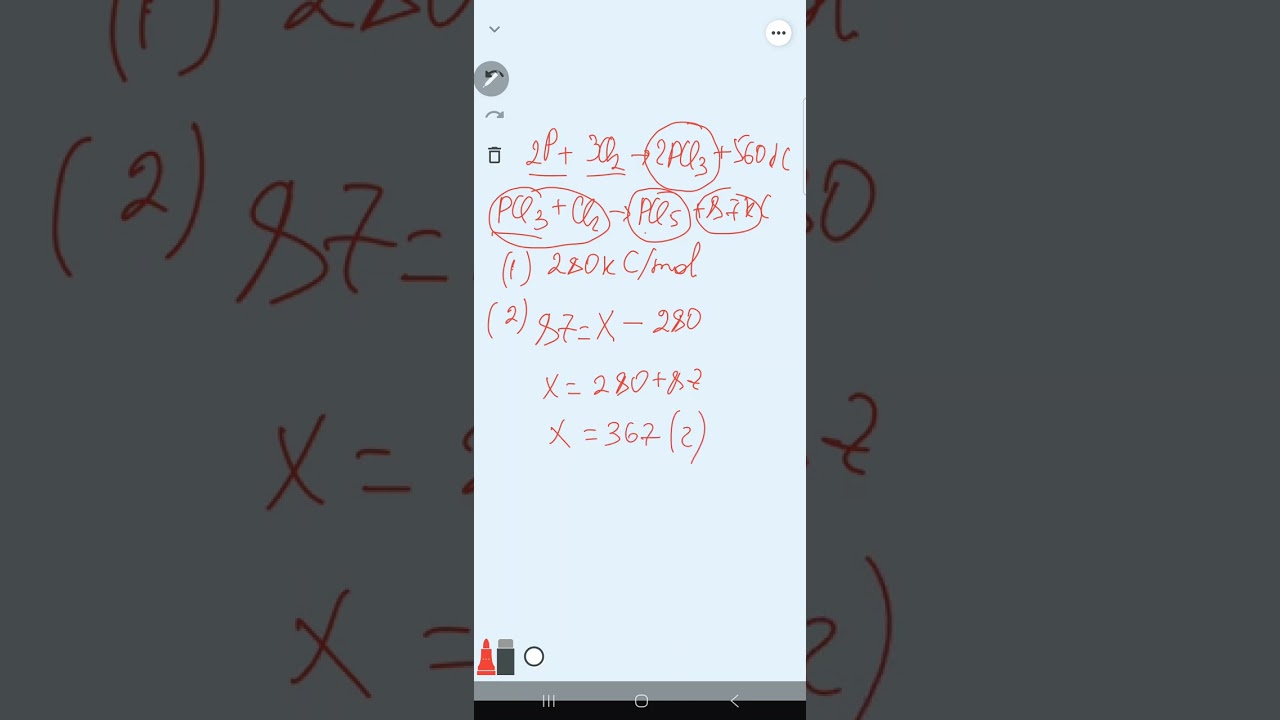 2P + 3Cl2 → 2PCl3 + 560 kC
PCl3 + Cl2 → PCl5 + 87 kC
(1) 280 kC/mol
(2) 87 = X − 280
X = 280 + 87
X = 367 (2)